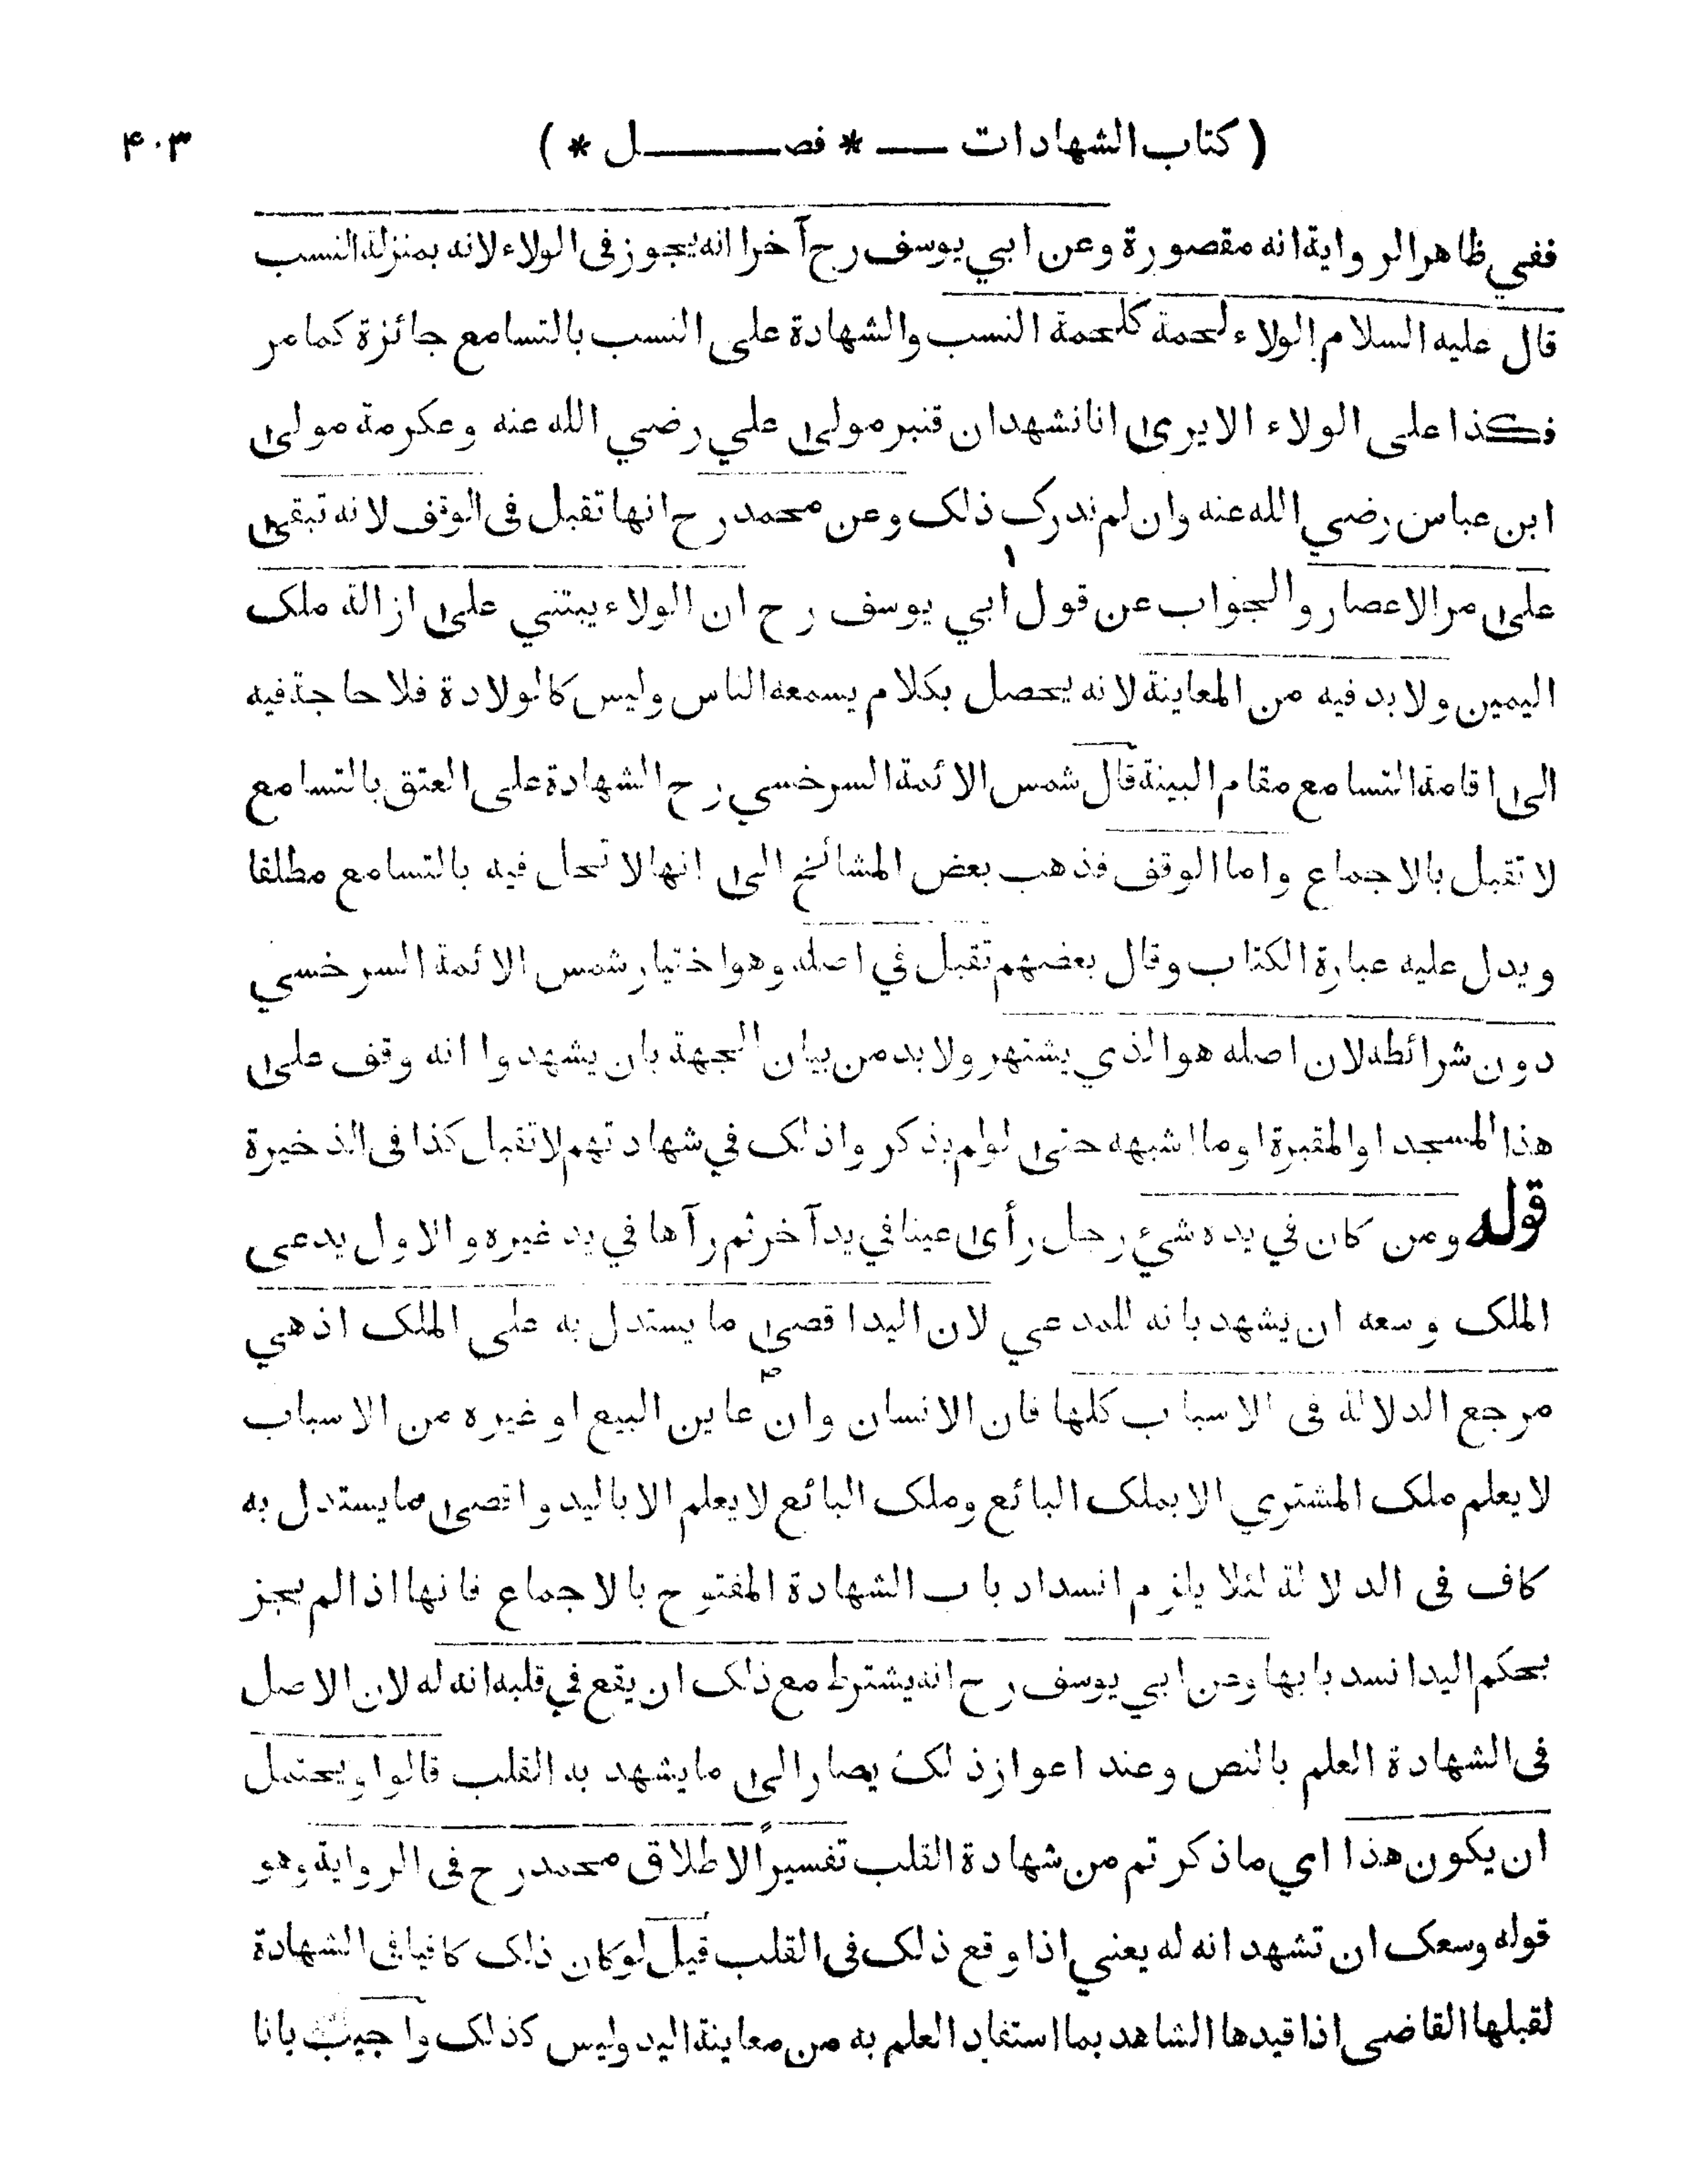 ( كتاب الشهادات ـــ * فصـــــل * ) ۴۰۳
ففي ظاهر الرواية انه مقصورة وعن ابي يوسف رح آخرا انه يجوز فى الولاء لانه بمنزلة النسب
قال عليه السلام الولاء لحمة كلحمة النسب والشهادة على النسب بالتسامع جائزة كما مر
فكذا على الولاء الا يرى انا نشهد ان قنبر مولى علي رضي الله عنه وعكرمة مولى
ابن عباس رضي الله عنه وان لم ندرك ذلك وعن محمد رح انها تقبل فى الوقف لانه تبقى
على مر الاعصار والجواب عن قول ابي يوسف رح ان الولاء يبتني على ازالة ملك
اليمين ولا بد فيه من المعاينة لانه يحصل بكلام يسمعه الناس وليس كالولادة فلا حاجة فيه
الى اقامة التسامع مقام البينة قال شمس الائمة السرخسي رح الشهادة على العتق بالتسامع
لا تقبل بالاجماع واما الوقف فذهب بعض المشائخ الى انها لا تحل فيه بالتسامع مطلقا
ويدل عليه عبارة الكتاب وقال بعضهم تقبل في اصله وهو اختيار شمس الائمة السرخسي
دون شرائطه لان اصله هو الذي يشتهر ولا بد من بيان الجهة بان يشهدوا انه وقف على
هذا المسجد او المقبرة او ما اشبهه حتى لو لم يذكروا ذلك في شهادتهم لا تقبل كذا فى الذخيرة
قوله ومن كان في يده شيء رجل رأى عينا في يد آخر ثم رآها في يد غيره والاول يدعى
الملك وسعه ان يشهد بانه للمدعي لان اليد اقصى ما يستدل به على الملك اذ هي
مرجع الدلالة فى الاسباب كلها فان الانسان وان عاين البيع او غيره من الاسباب
لا يعلم ملك المشتري الا بملك البائع وملك البائع لا يعلم الا باليد واقصى ما يستدل به
كاف فى الدلالة لئلا يلزم انسداد باب الشهادة المفتوح بالاجماع فانها اذا لم يجز
بحكم اليد انسد بابها وعن ابي يوسف رح انه يشترط مع ذلك ان يقع في قلبه انه له لان الاصل
فى الشهادة العلم بالنص وعند اعواز ذلك يصار الى ما يشهد به القلب قالوا ويحتمل
ان يكون هذا اي ما ذكرتم من شهادة القلب تفسيراً لاطلاق محمد رح فى الرواية وهو
قوله وسعك ان تشهد انه له يعني اذا وقع ذلك فى القلب قيل لو كان ذلك كافيا فى الشهادة
لقبلها القاضى اذا قيدها الشاهد بما استفاد العلم به من معاينة اليد وليس كذلك واجيب بانا